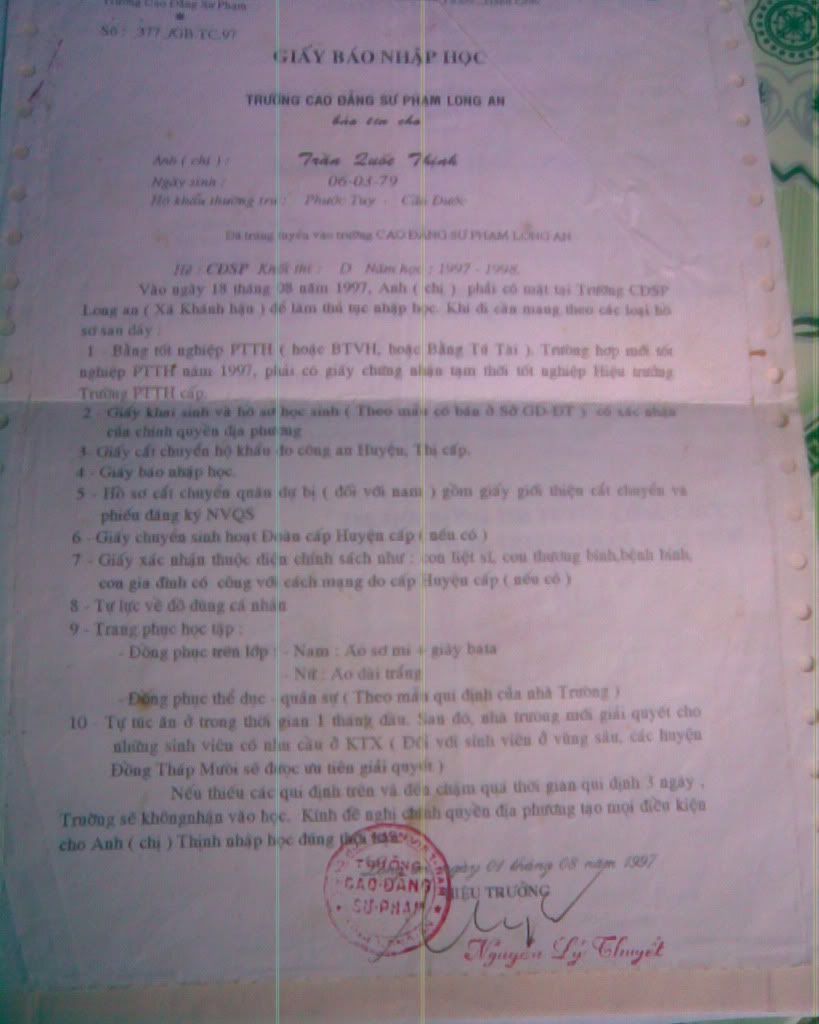 Trường Cao Đẳng Sư Phạm
Số : 377 /GB.TC.97
GIẤY BÁO NHẬP HỌC
TRƯỜNG CAO ĐẲNG SƯ PHẠM LONG AN
báo tin cho
Anh ( chị ) : Trần Quốc Thịnh
Ngày sinh : 06-03-79
Hộ khẩu thường trú : Phước Tuy - Cần Đước
Đã trúng tuyển vào trường CAO ĐẲNG SƯ PHẠM LONG AN
Hệ : CĐSP Khối thi : D Năm học : 1997 - 1998.
Vào ngày 18 tháng 08 năm 1997, Anh ( chị ) phải có mặt tại Trường CĐSP
Long an ( Xã Khánh hậu ) để làm thủ tục nhập học. Khi đi cần mang theo các loại hồ
sơ sau đây :
1 - Bằng tốt nghiệp PTTH ( hoặc BTVH, hoặc Bằng Tú Tài ). Trường hợp mới tốt
nghiệp PTTH năm 1997, phải có giấy chứng nhận tạm thời tốt nghiệp Hiệu trưởng
Trường PTTH cấp.
2 - Giấy khai sinh và hồ sơ học sinh ( Theo mẫu có bán ở Sở GD-ĐT ) có xác nhận
của chính quyền địa phương
3- Giấy cắt chuyển hộ khẩu do công an Huyện, Thị cấp.
4 - Giấy báo nhập học.
5 - Hồ sơ cắt chuyển quân dự bị ( đối với nam ) gồm giấy giới thiệu cắt chuyển và
phiếu đăng ký NVQS
6 - Giấy chuyển sinh hoạt Đoàn cấp Huyện cấp ( nếu có )
7 - Giấy xác nhận thuộc diện chính sách như : con liệt sĩ, con thương binh,bệnh binh,
con gia đình có công với cách mạng do cấp Huyện cấp ( nếu có )
8 - Tự lực về đồ dùng cá nhân
9 - Trang phục học tập :
- Đồng phục trên lớp : - Nam : Áo sơ mi + giày bata
- Nữ : Áo dài trắng
- Đồng phục thể dục - quân sự ( Theo mẫu qui định của nhà Trường )
10 - Tự túc ăn ở trong thời gian 1 tháng đầu. Sau đó, nhà trường mới giải quyết cho
những sinh viên có nhu cầu ở KTX ( Đối với sinh viên ở vùng sâu, các huyện
Đồng Tháp Mười sẽ được ưu tiên giải quyết )
Nếu thiếu các qui định trên và đến chậm quá thời gian qui định 3 ngày ,
Trường sẽ khôngnhận vào học. Kính đề nghị chính quyền địa phương tạo mọi điều kiện
cho Anh ( chị ) Thịnh nhập học đúng thời
Long an, ngày 01 tháng 08 năm 1997
HIỆU TRƯỞNG
TRƯỜNG
CAO ĐẲNG
SƯ PHẠM
Nguyễn Lý Thuyết